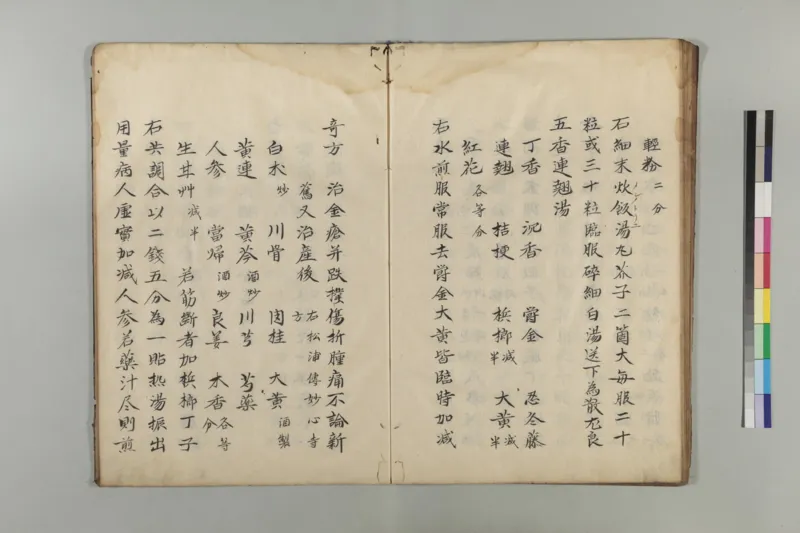 輕粉二分
石細末炊飯湯丸芥子二箇大每服二十
粒或三十粒臨服碎細白湯送下為散尤良
五香連翹湯
丁香 沉香 欝金 忍冬藤
連翹 桔梗 梹榔减半 大黄减半
紅花各等分
右水煎服常服去欝金大黄皆臨時加减
奇方 治金瘡并跌撲傷折腫痛不論新
舊又治産後 右松浦傳妙心寺方
白朮炒 川骨 肉桂 大黄酒製
黄連 黄芩酒炒 川芎 芍藥
人參 當帰酒炒 良姜 木香各等分
生甘艸减半 若筋斷者加梹榔丁子
右共調合以二錢五分為一貼热湯振出
用量病人虛實加减人參若藥汁尽則煎